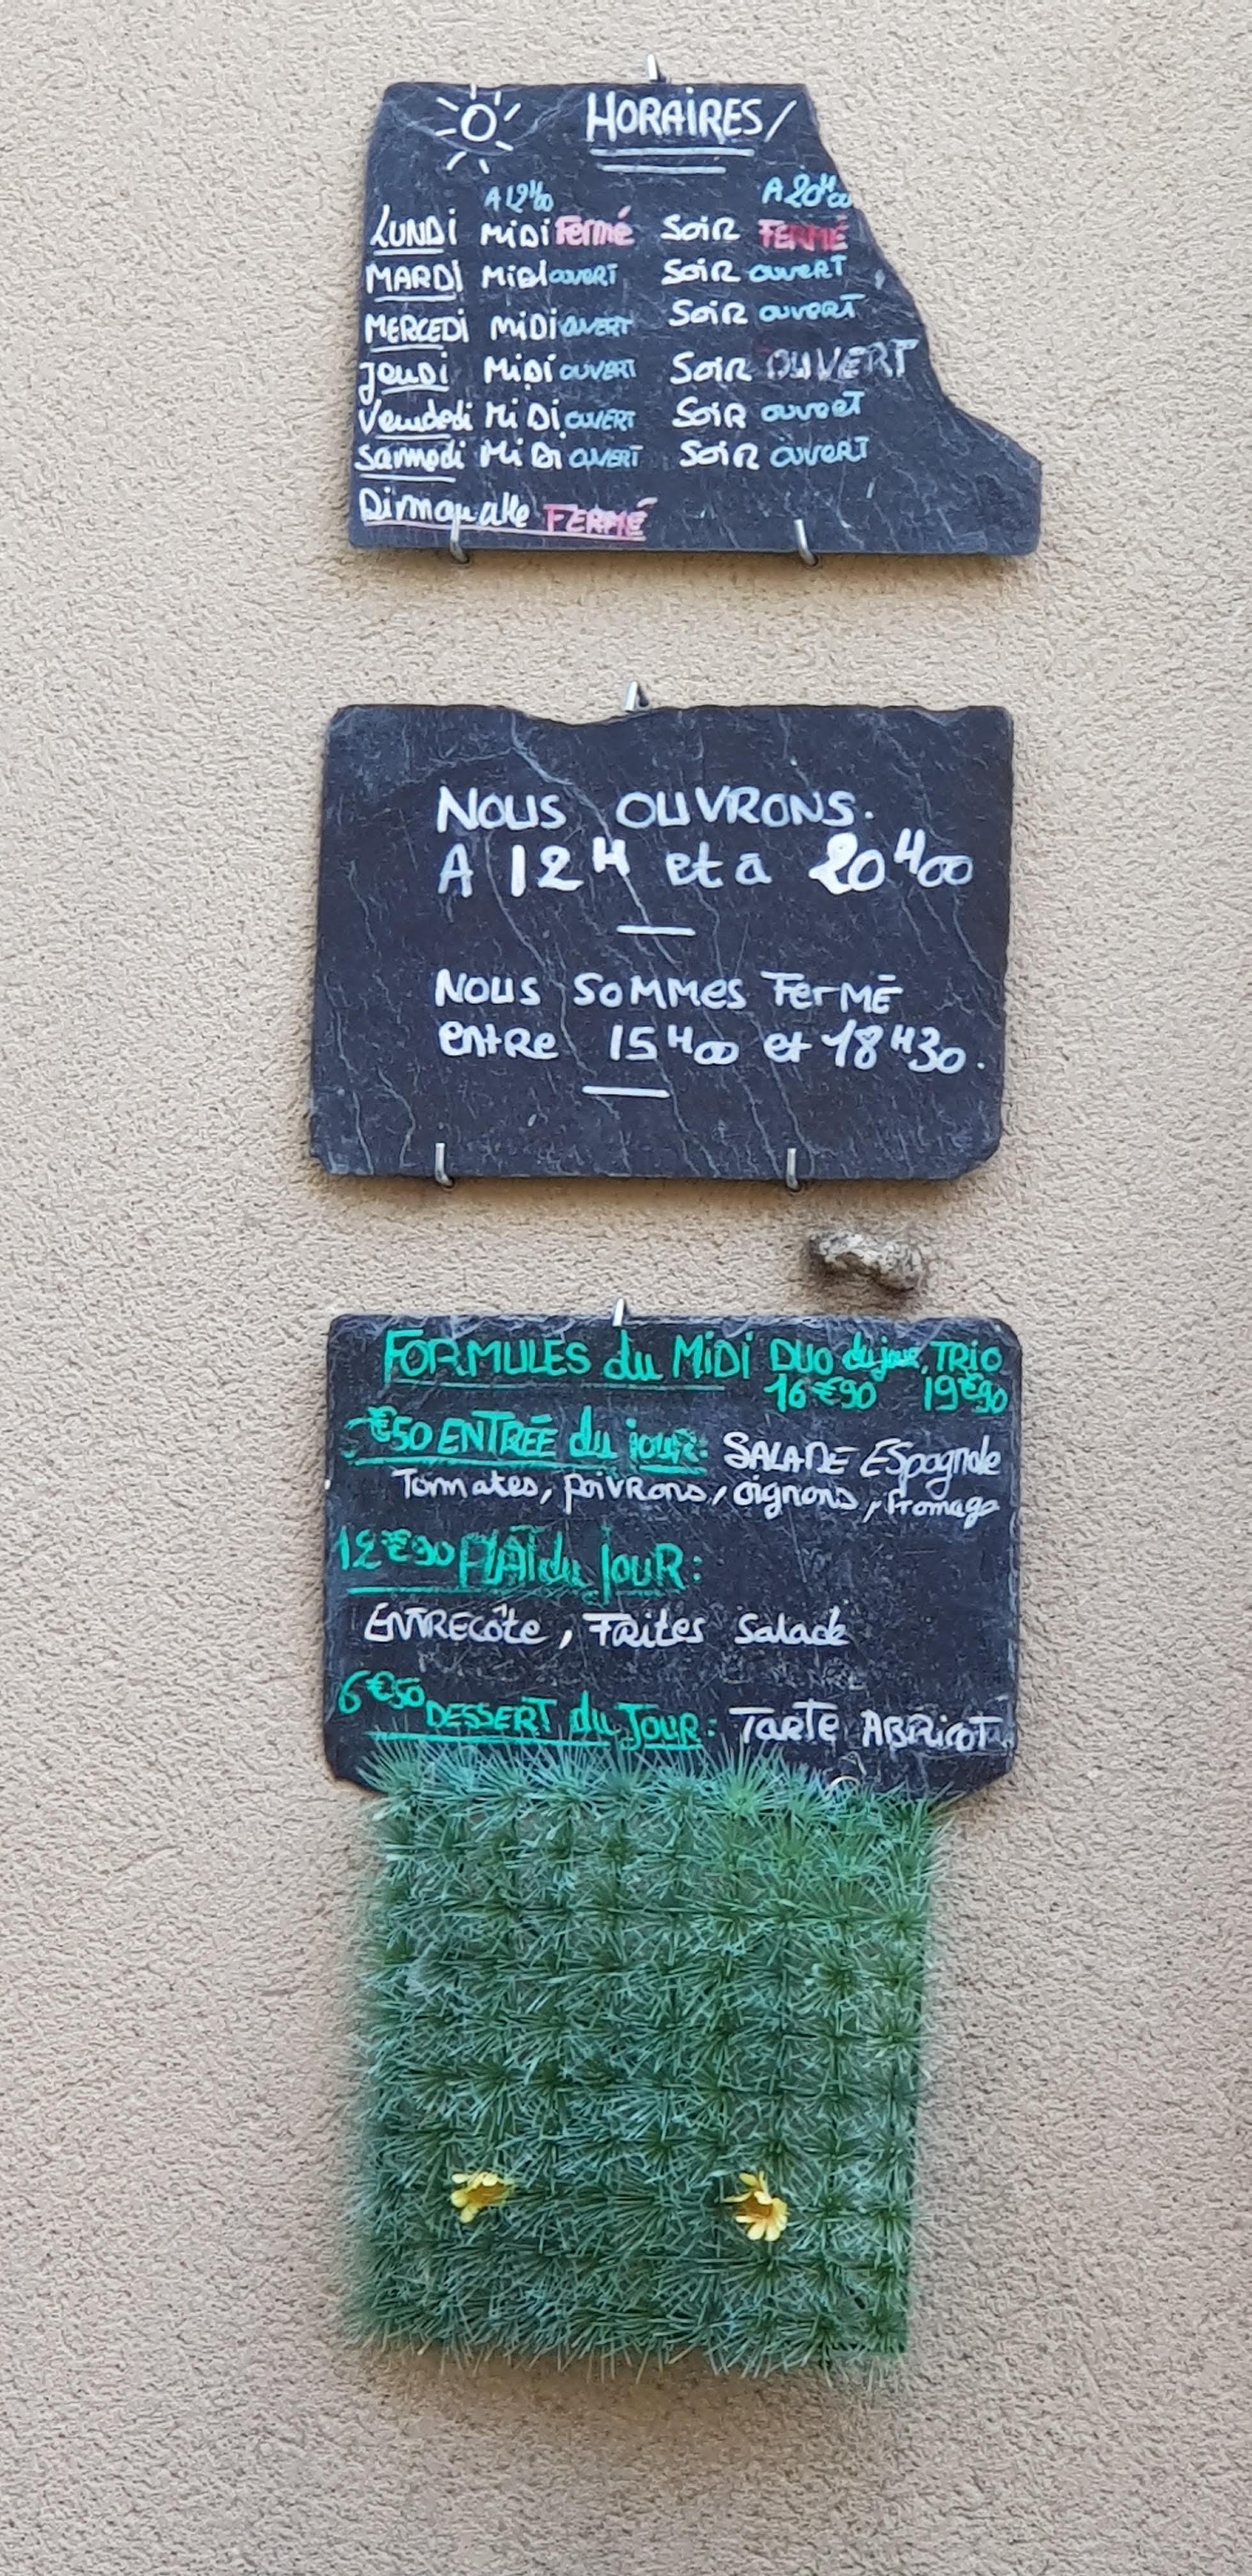 HORAIRES/
A 12H00 A 20H00
LUNDI MIDI Fermé SOIR FERMÉ
MARDI MIDI OUVERT SOIR OUVERT
MERCEDI MIDI OUVERT SOIR OUVERT
JEUDI MIDI OUVERT SOIR OUVERT
Vendredi MIDI OUVERT SOIR OUVERT
Samedi MIDI OUVERT SOIR OUVERT
Dimanche FERMÉ
NOUS OUVRONS.
A 12H et à 20H00
NOUS SOMMES FERMÉ
entre 15H00 et 18H30.
FORMULES du MIDI DUO du jour, TRIO
16€90 19€90
€50 ENTRÉE du jour: SALADE Espagnole
Tomates, poivrons, oignons, fromage
12€90 PLAT du JOUR:
ENTRECôte, FRites Salade
6€50 DESSERT du JOUR: TARTE ABRICOT